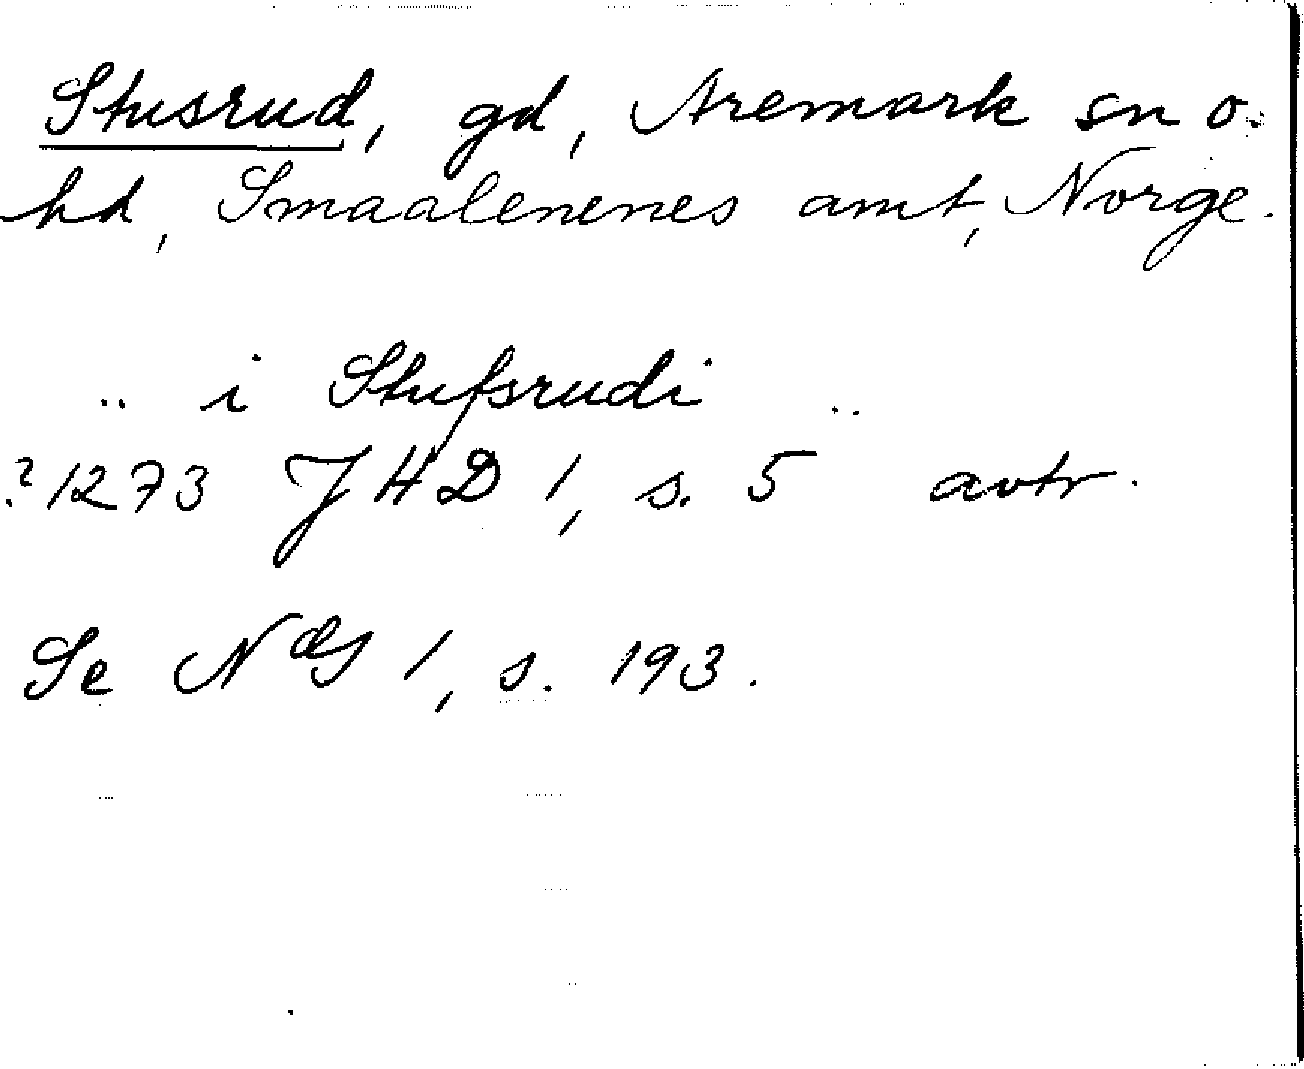 Stusrud, gd, Aremark sn o.
hd, Smaalenenes amt, Norge.
.. i Stufsrudi ..
?1273 JHD 1, s. 5 avtr.
Se NG 1, s. 193.